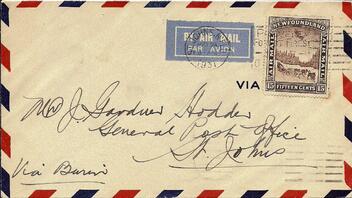 BY AIR MAIL
PAR AVION
1931
NEWFOUNDLAND
AIR MAIL
AIR MAIL
15 FIFTEEN CENTS 15
VIA
Mr J. Gardner Hodder
General Post Office
St. Johns
Via Burin